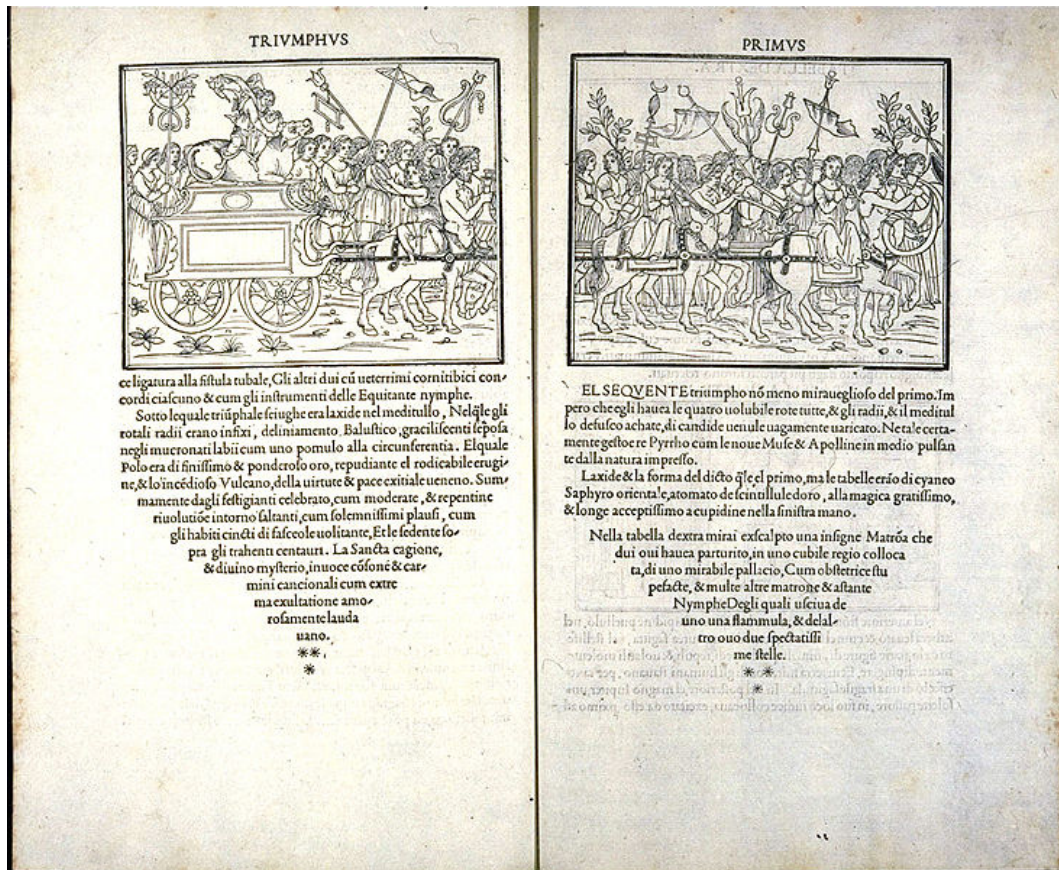 TRIVMPHVS
ce ligatura alla fistula tubale, Gli altri dui cū ueterrimi cornitibici con-
cordi ciascuno & cum gli instrumenti delle Equitante nymphe.
Sotto lequale triūphale seiughe era laxide nel meditullo, Nelq̄le gli
rotali radii erano infixi, deliniamento Balustico, graciliscenti seposa
negli mucronati labii cum uno pomulo alla circunferentia. Elquale
Polo era di finissimo & ponderoso oro, repudiante el rodicabile erugi-
ne, & lo'incēdioso Vulcano, della uirtute & pace exitiale ueneno. Sum-
mamente dagli festigianti celebrato, cum moderate, & repentine
riuolutiōe intorno saltanti, cum solemnissimi plausi, cum
gli habiti cincti di fasceole uolitante, Et le sedente so-
pra gli trahenti centauri. La Sancta cagione,
& diuino mysterio, in uoce cōsone & car-
mini cancionali cum extre
ma exultatione amo-
rosamente lauda
uano.
PRIMVS
EL SEQVENTE triumpho nō meno miraueglioso del primo. Im
pero che egli hauea le quatro uolubile rote tutte, & gli radii, & il meditul
lo defusco achate, di candide uenule uagamente uaricato. Netale certa-
mente gestoe re Pyrrho cum le noue Muse & Apolline in medio pulsan
te dalla natura impresso.
Laxide & la forma del dicto q̄le el primo, ma le tabelle erāo di cyaneo
Saphyro orientale, atomato de scintillule doro, alla magica gratissimo,
& longe acceptissimo a cupidine nella sinistra mano.
Nella tabella dextra mirai exscalpto una insigne Matrōa che
dui oui hauea parturito, in uno cubile regio colloca
ta, di uno mirabile pallacio, Cum obstetrice stu
pefacte, & multe altre matrone & astante
Nymphe Degli quali usciua de
uno una flammula, & delal-
tro ouo due spectatissi
me stelle.